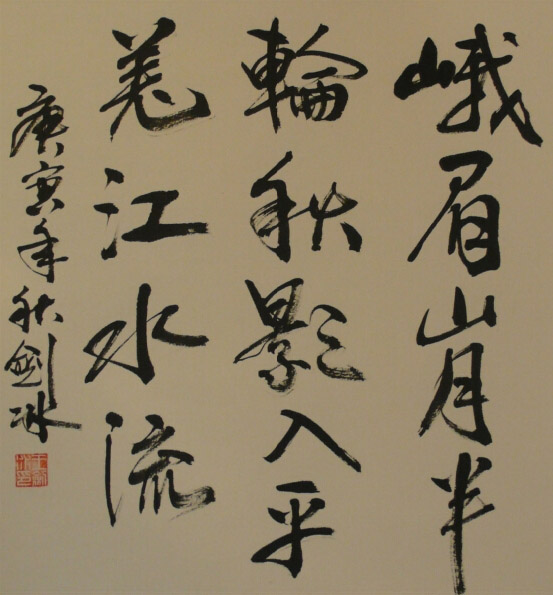 峨眉山月半
輪秋影入平
羌江水流
庚寅年秋劍冰